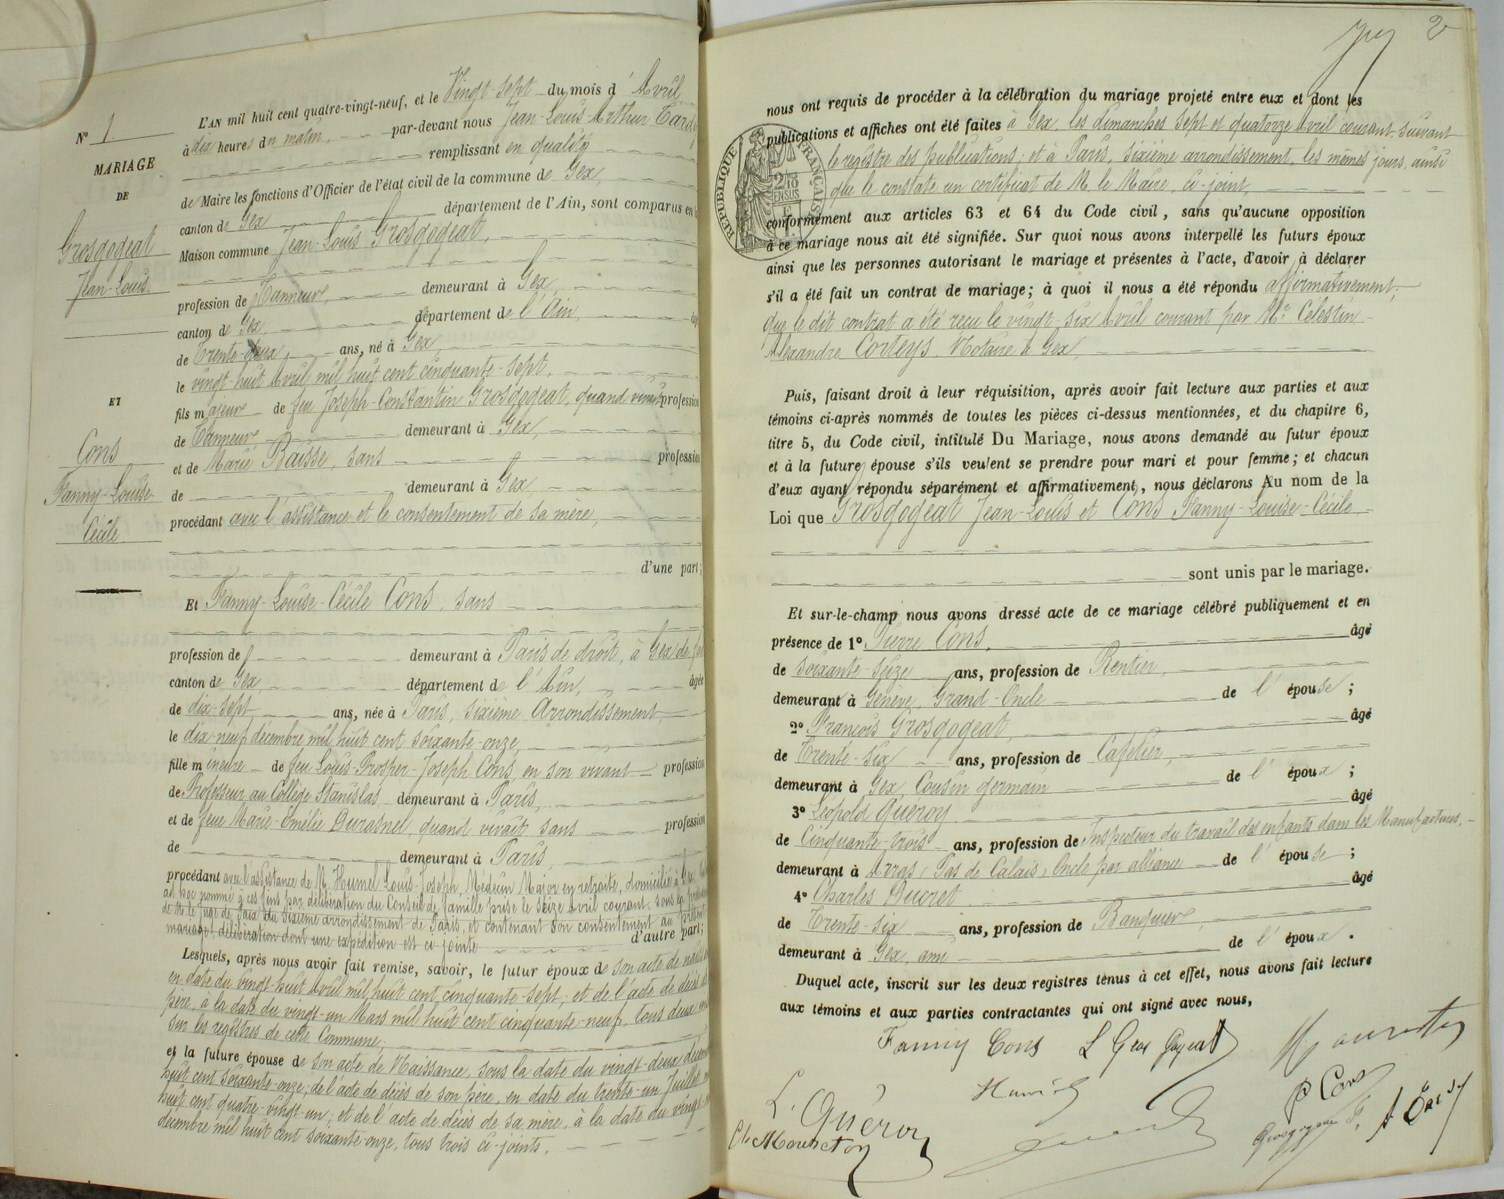 N° 1
MARIAGE
DE
Grosgogeat
Jean-Louis
ET
Cons
Fanny-Louise-
Cécile
L'AN mil huit cent quatre-vingt-neuf, et le Vingt-sept du mois d'Avril,
à dix heures du matin, par-devant nous Jean-Louis Arthur
remplissant en qualité
de Maire les fonctions d'Officier de l'état civil de la commune de Gex,
canton de Gex département de l'Ain, sont comparus en
Maison commune Jean-Louis Grosgogeat,
profession de Tanneur, demeurant à Gex,
canton de Gex, département de l'Ain,
de Trente-deux, ans, né à Gex,
le vingt-huit Avril mil huit cent cinquante-sept,
fils majeur de feu Joseph-Constantin Grosgogeat, quand vivait profession
de Tanneur demeurant à Gex,
et de Marie Baisse, sans profession
de demeurant à Gex
procédant avec l'assistance et le consentement de sa mère,
d'une part;
Et Fanny-Louise-Cécile Cons, sans
profession de demeurant à Paris de droit, à Gex de
canton de Gex, département de l'Ain, âgée
de dix-sept ans, née à Paris, sixième Arrondissement,
le dix-neuf décembre mil huit cent soixante-onze,
fille mineure de feu Louis-Prosper-Joseph Cons, en son vivant profession
de Professeur au Collège Stanislas demeurant à Paris,
et de feue Marie-Emélie quand vivait sans profession
de demeurant à Paris,
procédant avec l'assistance de M. Humel Louis-Joseph, Médecin Major en retraite, domicilié à
ad hoc nommé à ces fins par délibération du Conseil de famille prise le seize Avril courant, sous la
de M. le Juge de Paix du sixième arrondissement de Paris, et contenant son consentement au présent
mariage, délibération dont une expédition est ci-jointe d'autre part;
Lesquels, après nous avoir fait remise, savoir, le futur époux de son acte de
en date du vingt-huit Avril mil huit cent cinquante-sept; et de l'acte de décès de
père, à la date du vingt-un Mars mil huit cent cinquante-neuf, tous deux
sur les registres de cette Commune;
et la future épouse de son acte de Naissance, sous la date du vingt-deux
huit cent soixante-onze; de l'acte de décès de son père, en date du trente-un Juillet
huit cent quatre-vingt-un; et de l'acte de décès de sa mère, à la date du vingt
décembre mil huit cent soixante-onze, tous trois ci-joints.
2
nous ont requis de procéder à la célébration du mariage projeté entre eux et dont les
publications et affiches ont été faites à Gex, les dimanches sept et quatorze Avril courant, suivant
le registre des publications; et à Paris, sixième arrondissement, les mêmes jours, ainsi
que le constate un certificat de M. le Maire, ci-joint,
RÉPUBLIQUE FRANÇAISE
conformément aux articles 63 et 64 du Code civil, sans qu'aucune opposition
à ce mariage nous ait été signifiée. Sur quoi nous avons interpellé les futurs époux
ainsi que les personnes autorisant le mariage et présentes à l'acte, d'avoir à déclarer
s'il a été fait un contrat de mariage; à quoi il nous a été répondu affirmativement,
que le dit contrat a été reçu le vingt-six Avril courant par Me. Célestin-
Alexandre Corteys Notaire à Gex,
Puis, faisant droit à leur réquisition, après avoir fait lecture aux parties et aux
témoins ci-après nommés de toutes les pièces ci-dessus mentionnées, et du chapitre 6,
titre 5, du Code civil, intitulé Du Mariage, nous avons demandé au futur époux
et à la future épouse s'ils veulent se prendre pour mari et pour femme; et chacun
d'eux ayant répondu séparément et affirmativement, nous déclarons Au nom de la
Loi que Grosgogeat Jean-Louis et Cons Fanny-Louise-Cécile
sont unis par le mariage.
Et sur-le-champ nous avons dressé acte de ce mariage célébré publiquement et en
présence de 1° Pierre Cons, âgé
de soixante-seize ans, profession de Rentier,
demeurant à Genève, Grand-Oncle de l'épouse;
2° François Grosgogeat, âgé
de Trente-six ans, profession de Cafetier,
demeurant à Gex, Cousin germain de l'époux;
3° Léopold Guéroy âgé
de Cinquante-trois ans, profession de Inspecteur du travail des enfants dans les Manufactures,
demeurant à Arras, Pas de Calais, Oncle par alliance de l'épouse;
4° Charles Ducret âgé
de Trente-six ans, profession de Banquier,
demeurant à Gex, ami de l'époux.
Duquel acte, inscrit sur les deux registres tenus à cet effet, nous avons fait lecture
aux témoins et aux parties contractantes qui ont signé avec nous,
Fanny Cons L Gros Gogeat
P Cons
L. Guéroy